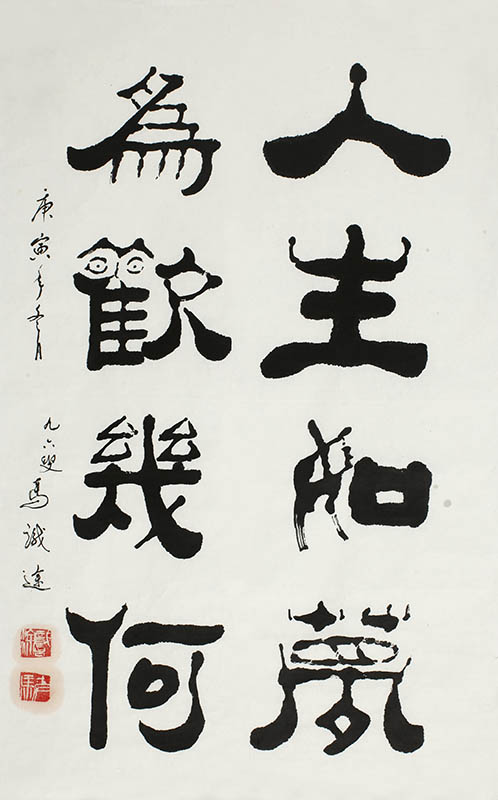 人生如夢
為歡幾何
庚寅年冬月
九六叟馬識途